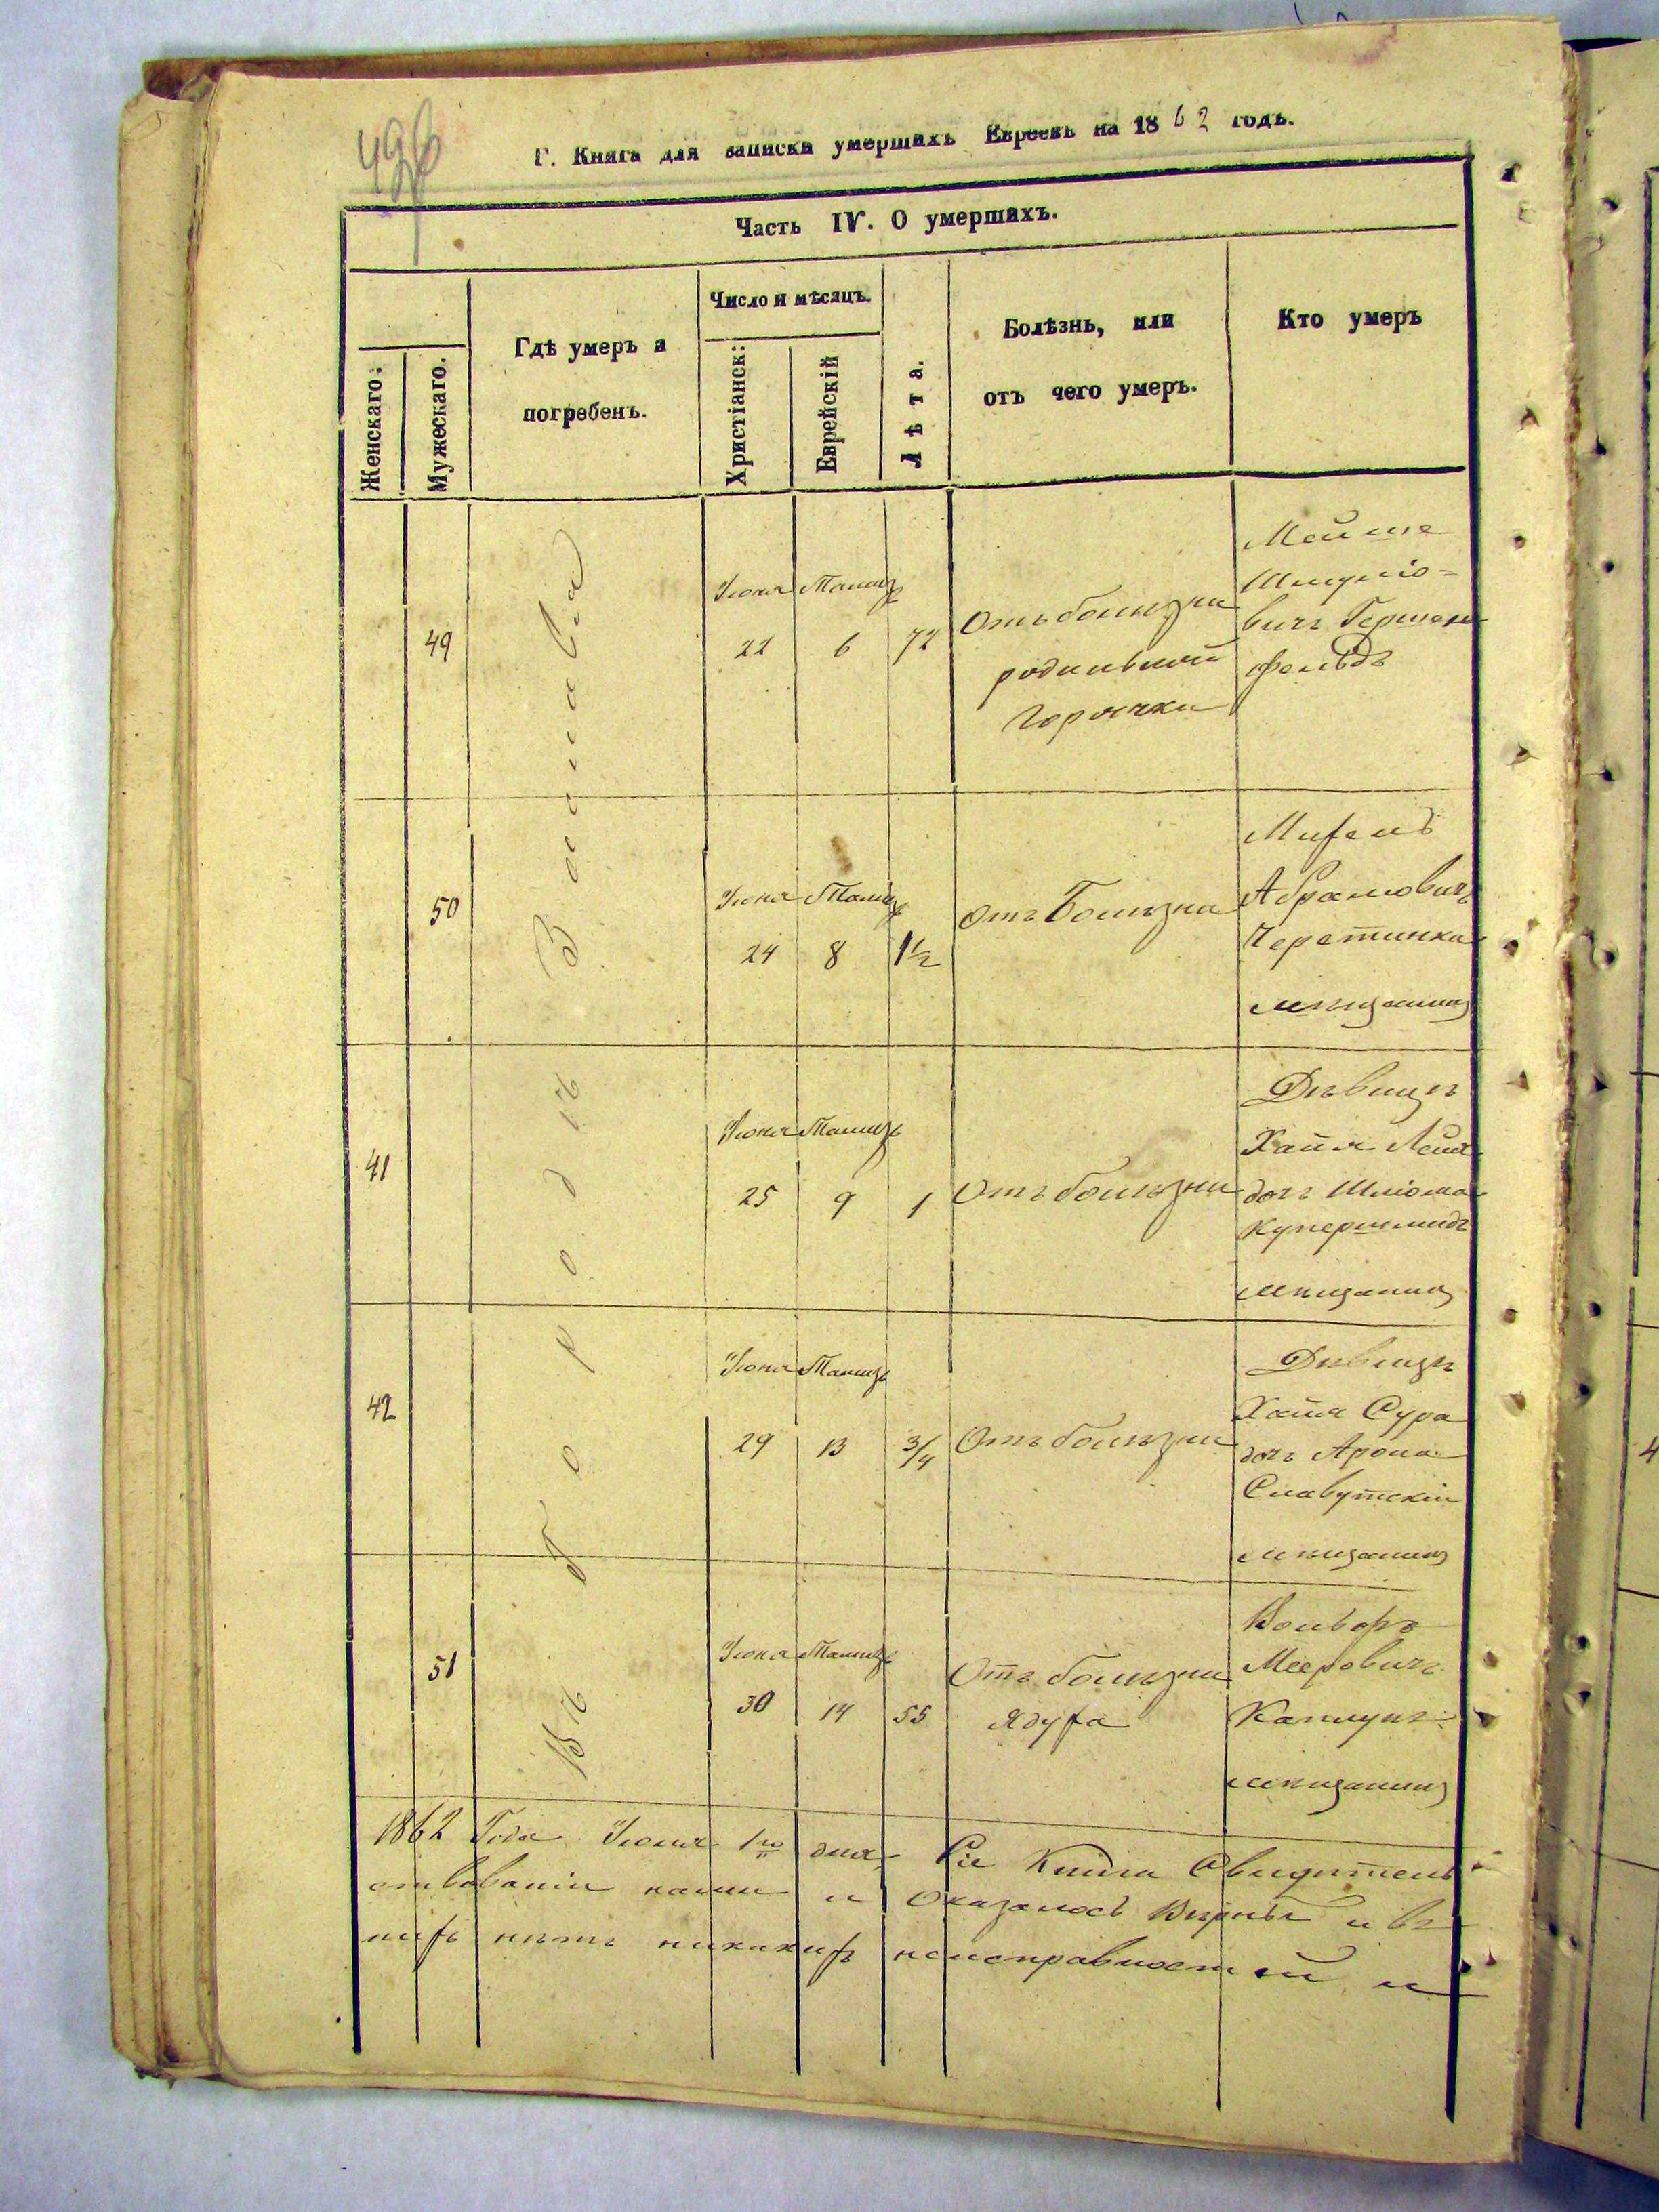 496
Г. Книга для записки умершихъ Евреевъ на 1862 годъ.
Часть IV. О умершихъ.
Женскаго.
Мужескаго.
Гдѣ умеръ и
погребенъ.
Число и мѣсяцъ.
Христіанск:
Еврейскій
Лѣта.
Болѣзнь, или
отъ чего умеръ.
Кто умеръ
Въ городѣ Заславѣ
49
Іюня Тамизъ
22 6 72
Отъ болѣзни
родильной
горячки
Мойше
Шмуліо-
вичъ Гершен
фельдъ
50
Іюня Тамизъ
24 8 1½
Отъ болѣзни
Михель
Абрамовичъ
Черетинка
мѣщанинъ
41
Іюня Тамизъ
25 9 1
Отъ болѣзни
Дѣвица
Хайя Лея
дочь Шліома
Купершмидъ
мѣщанинъ
42
Іюня Тамизъ
29 13 3/4
Отъ болѣзни
Дѣвица
Хайя Сура
дочь Арона
Славутскій
мѣщанинъ
51
Іюня Тамизъ
30 14 55
Отъ болѣзни
Ядуха
Вольфъ
Мееровичъ
Каплунъ
мѣщанинъ
1862 Года Іюля 1го дня, Сіе Книга Свидѣтель
ствованіи нами и оказалось Вѣрны и въ
нихъ нѣтъ никакихъ неисправностей и